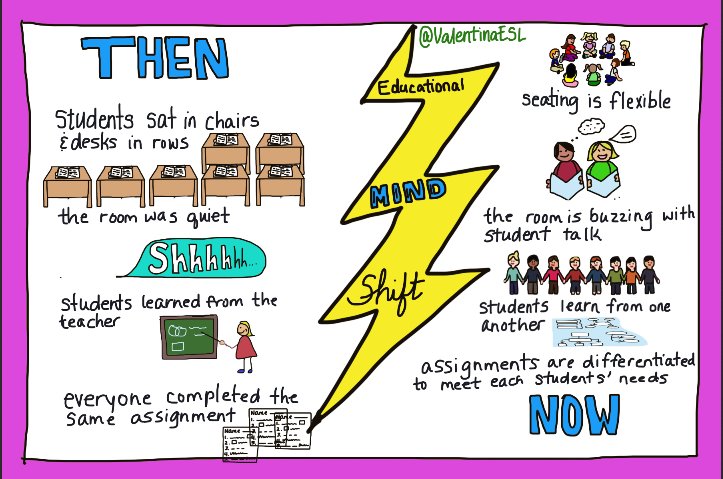 THEN
Students sat in chairs
& desks in rows
the room was quiet
Shhhhhh...
students learned from the
teacher
everyone completed the
same assignment
Name
1.
2.
3.
4.
Name
1.
2.
3.
Name
1.
2.
3.
4.
@ValentinaESL
Educational
MIND
Shift
seating is flexible
the room is buzzing with
student talk
students learn from one
another
assignments are differentiated
to meet each students' needs
NOW